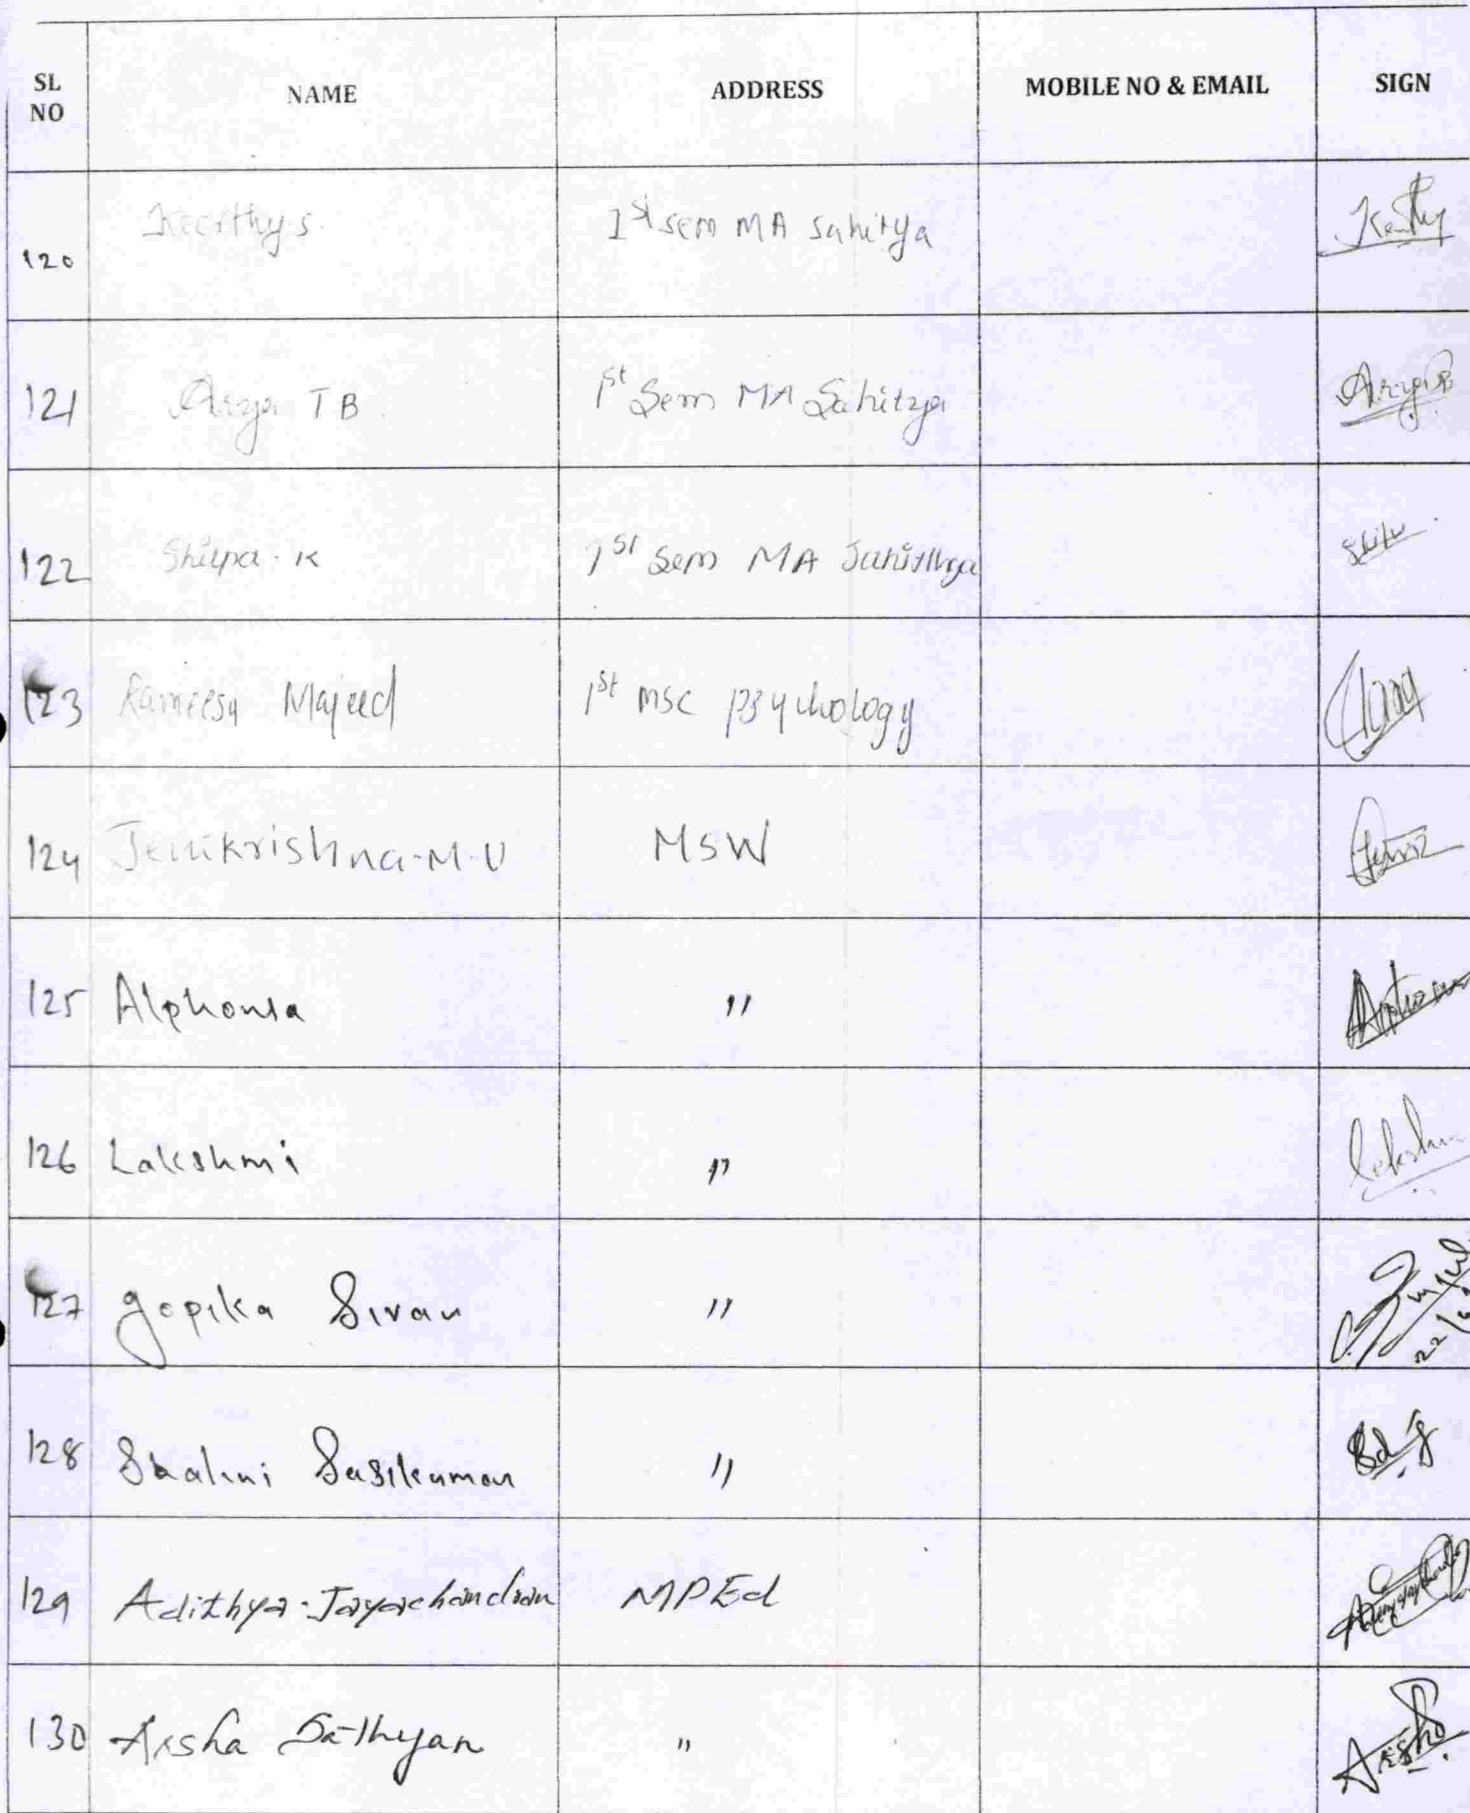 SL NO NAME ADDRESS MOBILE NO & EMAIL SIGN
120 Keerthy s. 1st sem MA sahitya
121 Arya T B 1st Sem MA Sahitya
122 Shilpa . K 1st Sem MA Sahithya
123 Rameesa Majeed 1st msc psychology
124 Jenikrishna-M-U MSW
125 Alphonsa "
126 Lakshmi "
127 gopika Sivan " 22/
128 Shalini Sasikumar "
129 Adithya-Jayachandran MPEd
130 Arsha Sathyan " Arsha